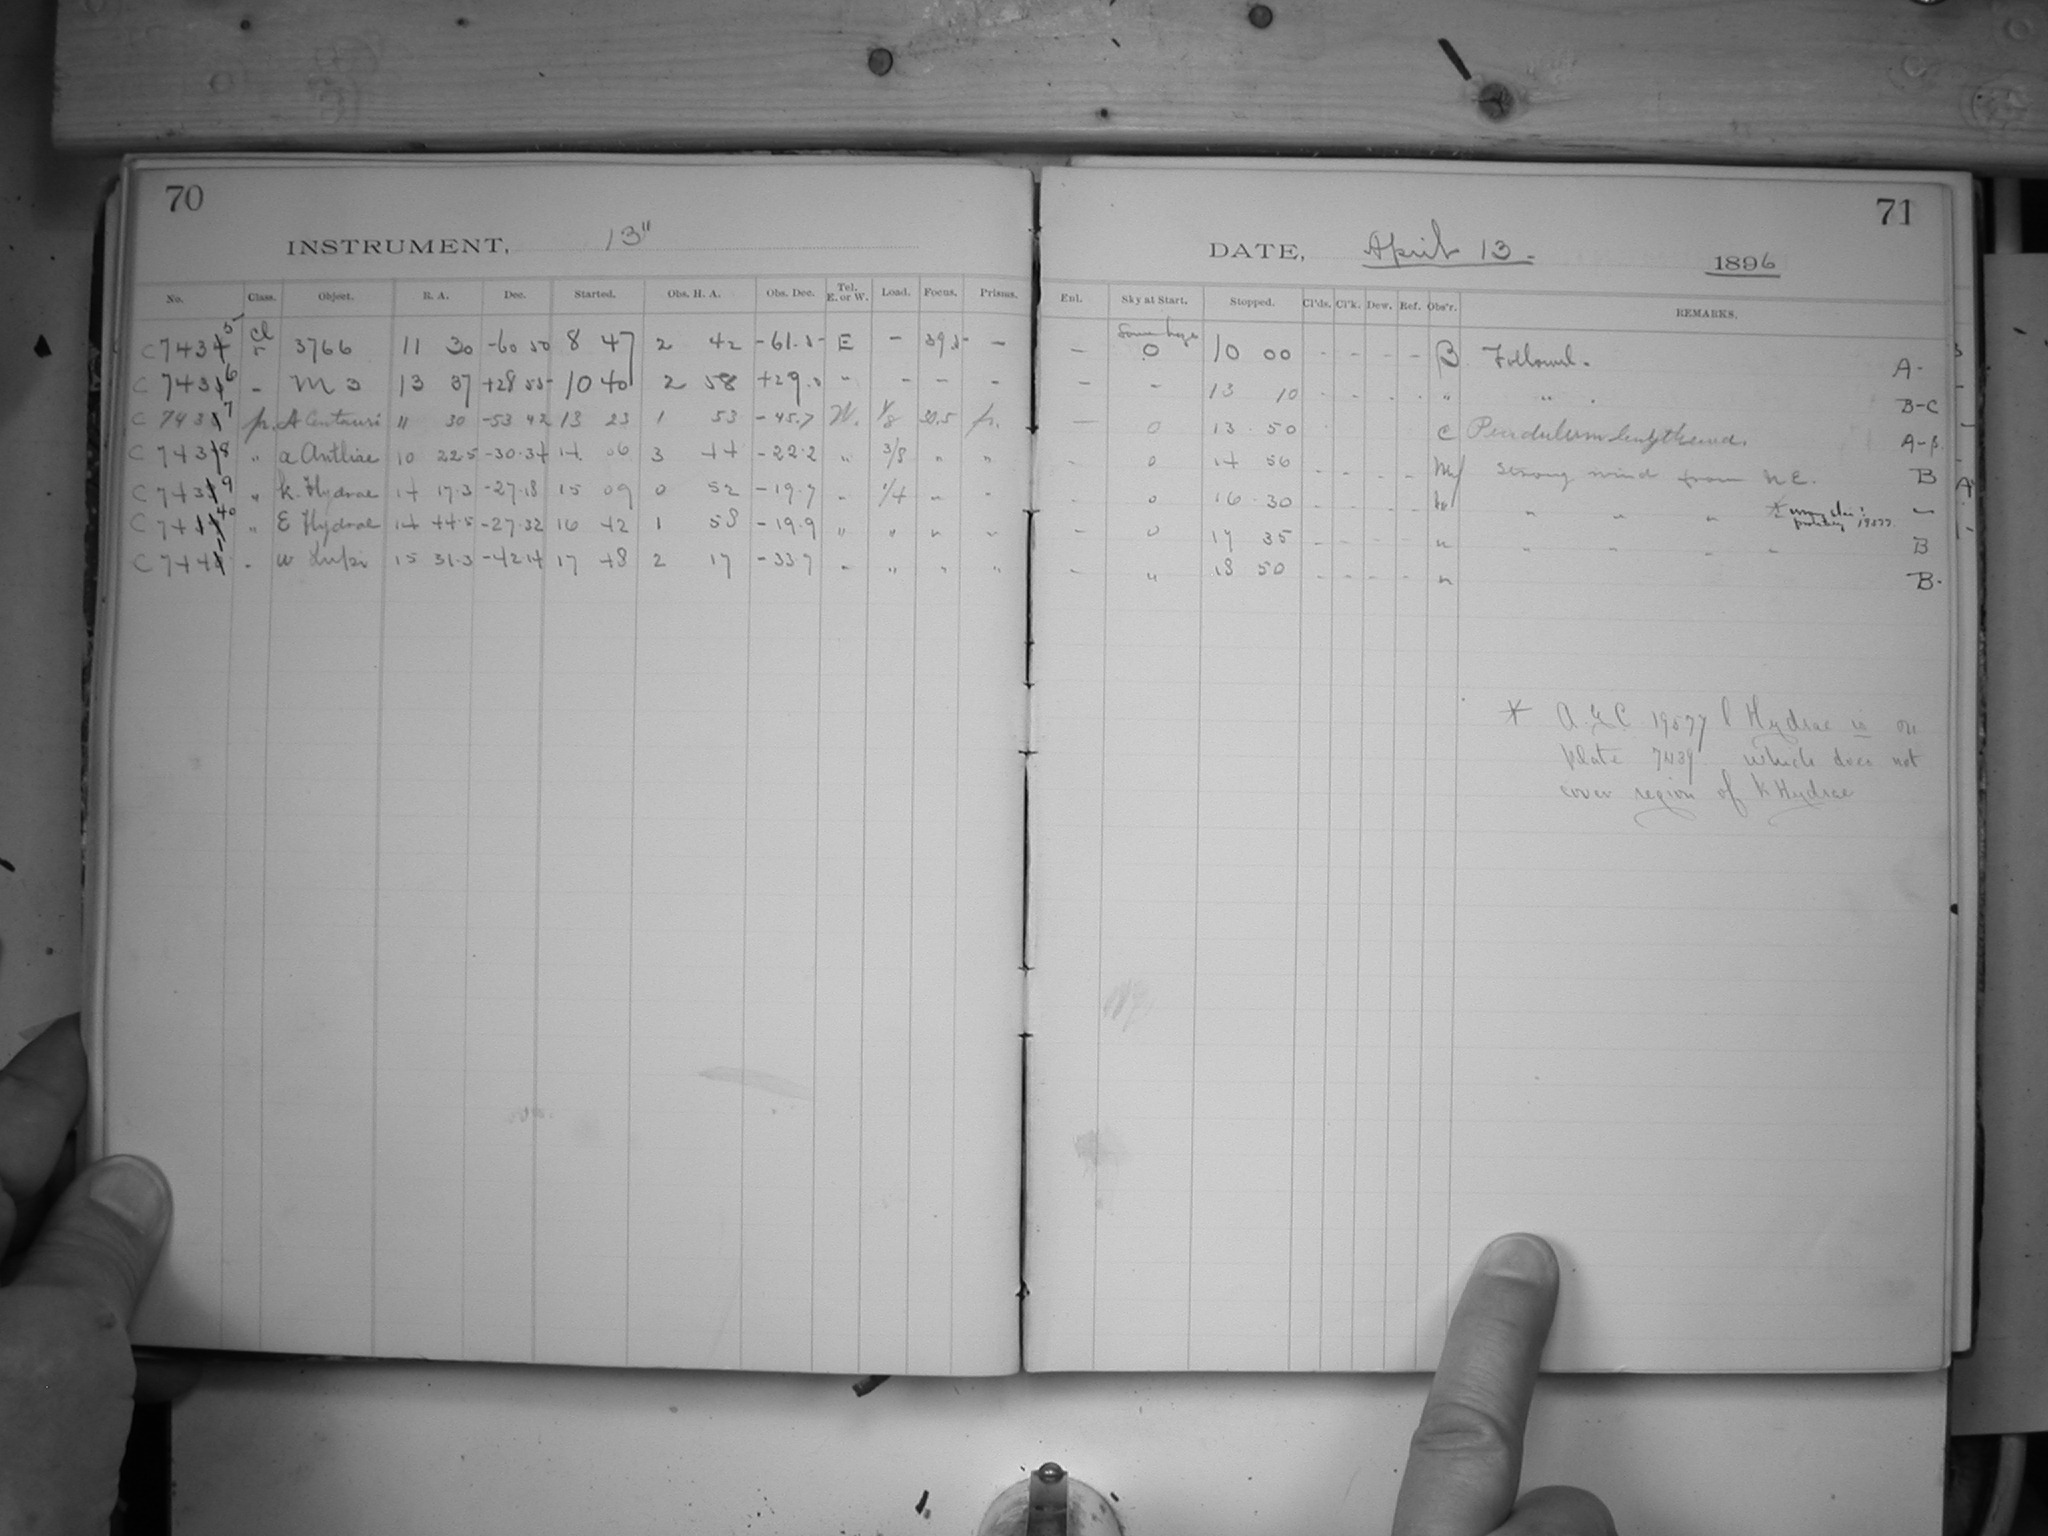 70
INSTRUMENT, 13"
No. Class. Object. R. A. Dec. Started. Obs. H. A. Obs. Dec. Tel. E. or W. Load. Focus. Prisms.
C 7435 Cl 3766 11 30 -60 50 8 47 2 42 -61.5 E - 39.5 -
C 7436 - M 3 13 37 +28 55 10 40 2 58 +29.0 " - - -
C 7437 pr. A Centauri " 30 -53 42 13 23 1 53 -45.7 W. 1/8 pr.
C 7438 " a Antliae 10 22.5 -30.34 14 06 3 44 -22.2 " 3/8 " "
C 7439 " k. Hydrae 14 17.3 -27.18 15 09 0 52 -19.7 " 1/4 " "
C 7440 " E Hydrae 14 44.5 -27.32 16 42 1 58 -19.9 " " " "
C 7441 - w Lupi 15 31.3 -42 14 17 48 2 17 -33 7 " " " "
71
DATE, April 13. 1896
Enl. Sky at Start. Stopped. Cl'ds. Cl'k. Dew. Ref. Obs'r. REMARKS.
Some haze
- 0 10 00 - - - - B Followed. A-
- - 13 10 - - - - " " B-C
- 0 13 50 C Pendulum lengthened. A-B
- 0 14 56 - - - - Strong wind from N.E. B
- 0 16 30 - - - - " " " * wrong star? probably 19577
- 0 17 35 - - - - " " " " " B
- " 18 50 - - - - " B-
* A.G.C 19577 l Hydrae is on
plate 7439 which does not
cover region of k Hydrae